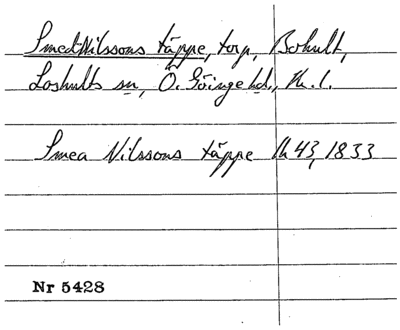 Smed-Nilssons täppe, torp, Bohult,
Loshults sn, Ö. Göinge hd., Kr. l.
Smea Nilssons täppe Ik 43, 1833
Nr 5428